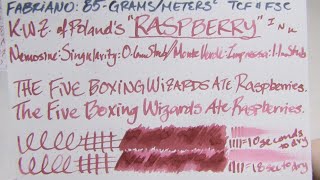 FABRIANO: 85-GRAMS/METERS² TCF & FSC
K.W.Z. of Poland's "RASPBERRY" INK
Nemosine: Singularity: 0.6mm Stub/ Monte Verde: Impressa: 1.1mm Stub
THE FIVE BOXING WIZARDS ATE RASPBERRIES.
The Five Boxing Wizards Ate Raspberries.
=10 seconds to dry
=18 sec to dry